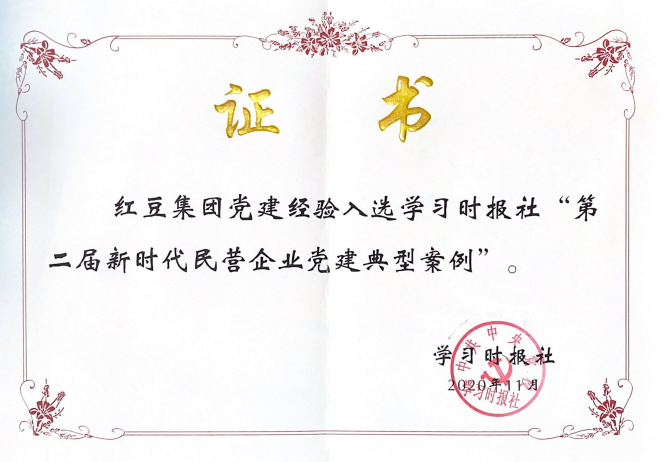 证书
红豆集团党建经验入选学习时报社“第
二届新时代民营企业党建典型案例”。
学习时报社
2020年11月
中共中央党校
学习时报社